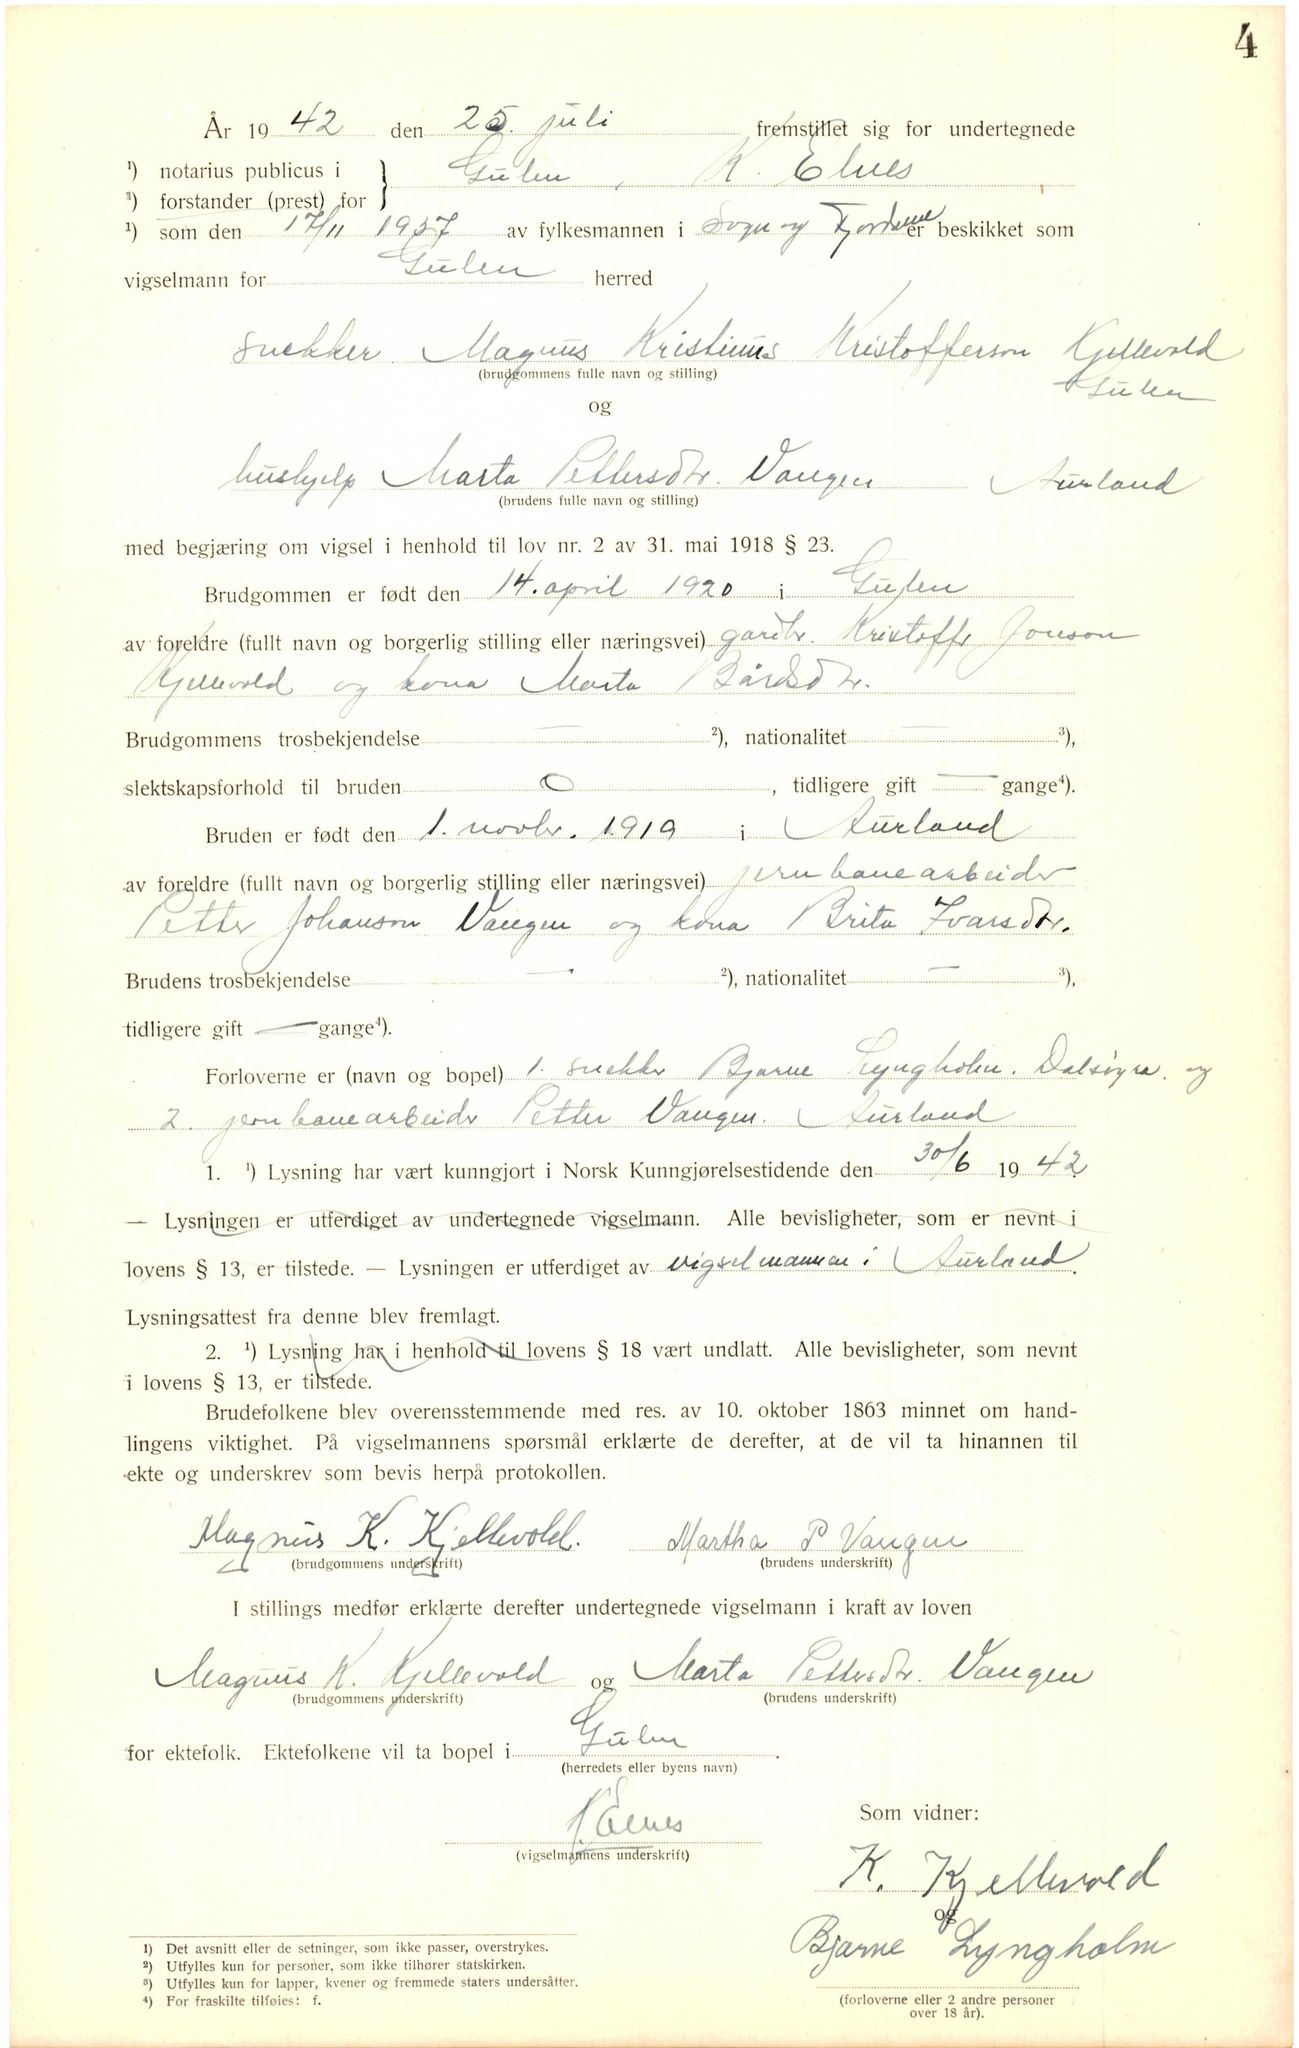 4
År 1942 den 25. juli fremstillet sig for undertegnede
¹) notarius publicus i } Gulen, K. Elnes
¹) forstander (prest) for
¹) som den 17/11 1937 av fylkesmannen i Sogn og Fjordane er beskikket som
vigselmann for Gulen herred
snekker Magnus Kristofferson Kjellevold
(brudgommens fulle navn og stilling)
Gulen
og
hushjelp Marta Pettersdtr. Vangen Aurland
(brudens fulle navn og stilling)
med begjæring om vigsel i henhold til lov nr. 2 av 31. mai 1918 § 23.
Brudgommen er født den 14. april 1920 i Gulen
av foreldre (fullt navn og borgerlig stilling eller næringsvei) gardbr. Kristoffer Jonson
Kjellevold og kona Marta Bårdsdtr.
Brudgommens trosbekjendelse — ²), nationalitet — ³),
slektskapsforhold til bruden 0, tidligere gift — gange⁴).
Bruden er født den 1. novbr. 1919 i Aurland
av foreldre (fullt navn og borgerlig stilling eller næringsvei) jernbanearbeider
Petter Johanson Vangen og kona Brita Ivarsdtr.
Brudens trosbekjendelse — ²), nationalitet — ³),
tidligere gift — gange⁴).
Forloverne er (navn og bopel) 1. snekker Bjarne Lyngholm. Dalsøyra. og
2. jernbanearbeider Petter Vangen. Aurland
1. ¹) Lysning har vært kunngjort i Norsk Kunngjørelsestidende den 30/6 1942
— Lysningen er utferdiget av undertegnede vigselmann. Alle bevisligheter, som er nevnt i
lovens § 13, er tilstede. — Lysningen er utferdiget av vigselmannen i Aurland.
Lysningsattest fra denne blev fremlagt.
2. ¹) Lysning har i henhold til lovens § 18 vært undlatt. Alle bevisligheter, som nevnt
i lovens § 13, er tilstede.
Brudefolkene blev overensstemmende med res. av 10. oktober 1863 minnet om hand-
lingens viktighet. På vigselmannens spørsmål erklærte de derefter, at de vil ta hinannen til
ekte og underskrev som bevis herpå protokollen.
Magnus K. Kjellevold. Martha P Vangen
(brudgommens underskrift) (brudens underskrift)
I stillings medfør erklærte derefter undertegnede vigselmann i kraft av loven
Magnus K. Kjellevold og Marta Pettersdtr. Vangen
(brudgommens underskrift) (brudens underskrift)
for ektefolk. Ektefolkene vil ta bopel i Gulen.
(herredets eller byens navn)
Som vidner:
K. Elnes
(vigselmannens underskrift)
K. Kjellevold
og
Bjarne Lyngholm
(forloverne eller 2 andre personer
over 18 år).
1) Det avsnitt eller de setninger, som ikke passer, overstrykes.
2) Utfylles kun for personer, som ikke tilhører statskirken.
3) Utfylles kun for lapper, kvener og fremmede staters undersåtter.
4) For fraskilte tilføies: f.